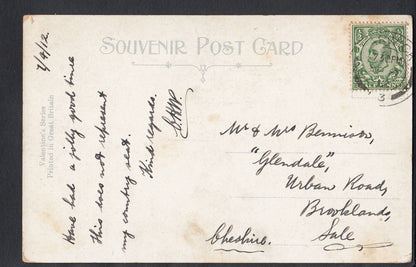 SOUVENIR POST CARD
7/9/12
Have had a jolly good time
This does not represent
my country seat.
Kind regards.
Valentine's Series
Printed in Great Britain
Mr & Mrs Bennison,
"Glendale",
Urban Road,
Brooklands,
Sale
Cheshire.